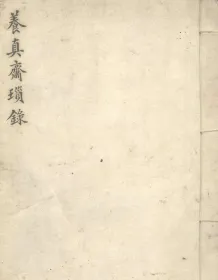 養真齋瑣錄